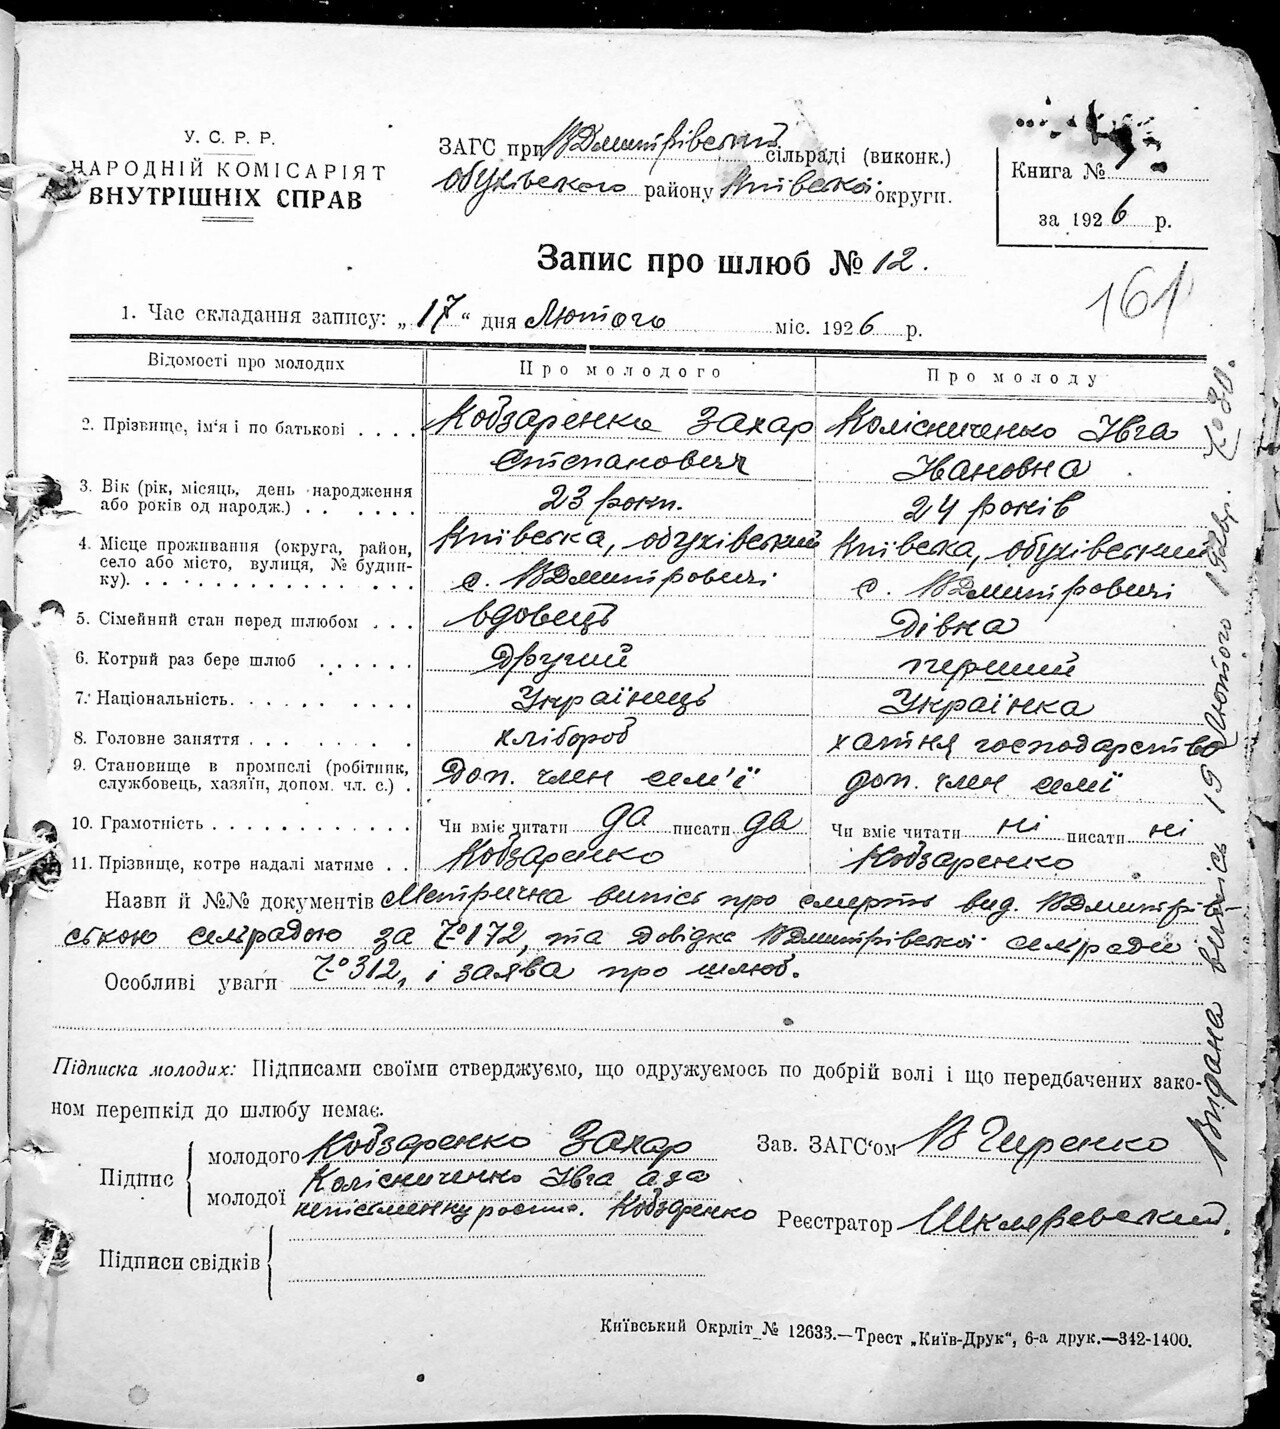 У. С. Р. Р.
НАРОДНІЙ КОМІСАРІЯТ
ВНУТРІШНІХ СПРАВ
ЗАГС при ВДмитрівській сільраді (виконк.)
Обухівського району Київської округи.
Книга №
за 1926 р.
Запис про шлюб № 12.
161
1. Час складання запису: „17“ дня Лютого міс. 1926 р.
Відомості про молодих
Про молодого
Про молоду
2. Прізвище, ім‘я і по батькові . . . . Кобзаренко Захар Колісниченко Івга
Степанович Івановна
3. Вік (рік, місяць, день народження
або років од народж.) . . . . . . 23 роки. 24 років
4. Місце проживання (округа, район, Київська, обухівський Київська, обухівський
село або місто, вулиця, № будин-
ку). . . . . . . . . . . . . . . с. ВДмитровичі с. ВДмитровичі
5. Сімейний стан перед шлюбом . . . вдовець дівка
6. Котрий раз бере шлюб . . . . . . Другий перший
7. Національність. . . . . . . . . . Українець Українка
8. Головне заняття . . . . . . . . хлібороб хатня господарство
9. Становище в промислі (робітник,
службовець, хазяїн, допом. чл. с.) . Доп. член сем'ї доп. член семї
10. Грамотність . . . . . . . . . . . . Чи вміє читати да писати да Чи вміє читати ні писати ні
11. Прізвище, котре надалі матиме . . Кобзаренко Кобзаренко
Назви й №№ документів Метрична випісь про смерть вид. ВДмитрів-
ською сельрадою за №172, та довідка ВДмитрівської сельради
Особливі уваги №312, і заява про шлюб.
Підписка молодих: Підписами своїми стверджуємо, що одружуємось по добрій волі і що передбачених зако-
ном перешкід до шлюбу немає.
Підпис
молодого Кобзаренко Захар
молодої Колісниченко Івга а за
неписьменну роспис. Кобзаренко
Зав. ЗАГС‘ом
Реєстратор
Підписи свідків
Видана випісь 19 Лютого 192 р. №30.
Київський Окрліт № 12633.—Трест „Київ-Друк“, 6-а друк.—342-1400.